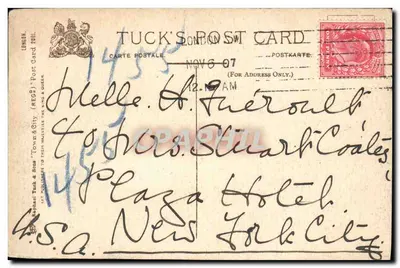 TUCK'S POST CARD
CARTE POSTALE. POSTKARTE.
LONDON S.W.
NOV 6 07
(FOR ADDRESS ONLY.)
12. AM
1455
Melle. H. Théroult
c/o Mrs. Stuart Coates,
1455
Plaza Hotel
New York City.
U.S.A.
LONDON.
Raphael Tuck & Sons "Town & City" Post Card 2011.